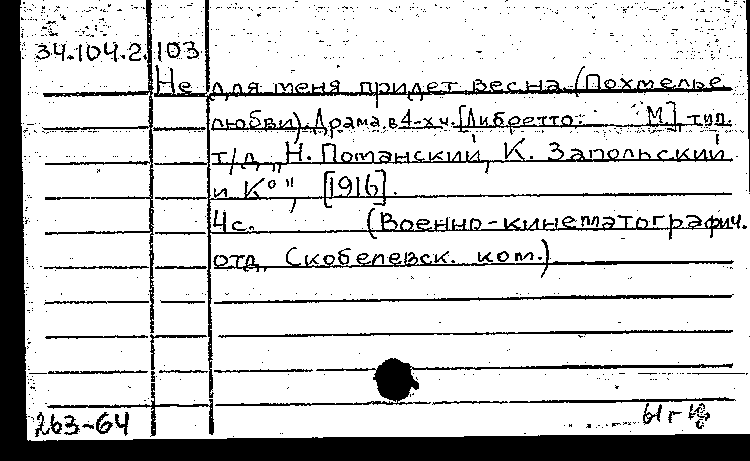 34.104.2.103
Не для меня придет весна (Похмелье
любви). Драма в 4-х ч. [Либретто. М.], тип.
т/д „Н. Поманский, К. Запольский
и К°", [1916].
4с. (Военно-кинематографич.
отд. Скобелевск. ком.)
263-64 61г